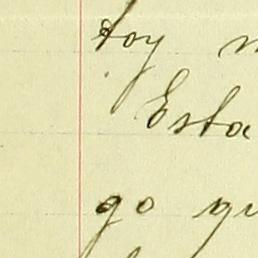 toy
Esta
go qu